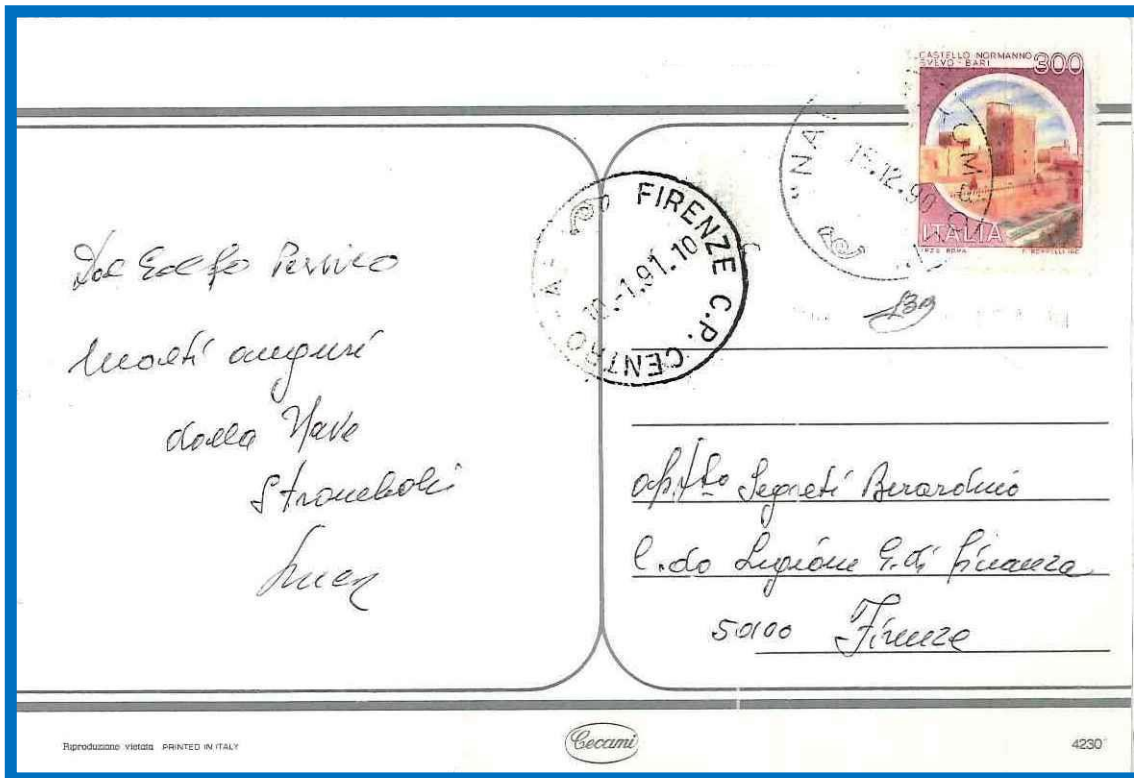 CASTELLO NORMANNO
SVEVO - BARI 300
ITALIA
I.P.Z.S. ROMA
15.12.90
FIRENZE C.P. CENTRO
10.-1.91.10
Dal Golfo Persico
Molti auguri
dalla Nave
Stromboli
Luca
App/to Segreti Berardino
C.do Legione G. di Finanza
50100 Firenze
Riproduzione vietata PRINTED IN ITALY
Cecami
4230